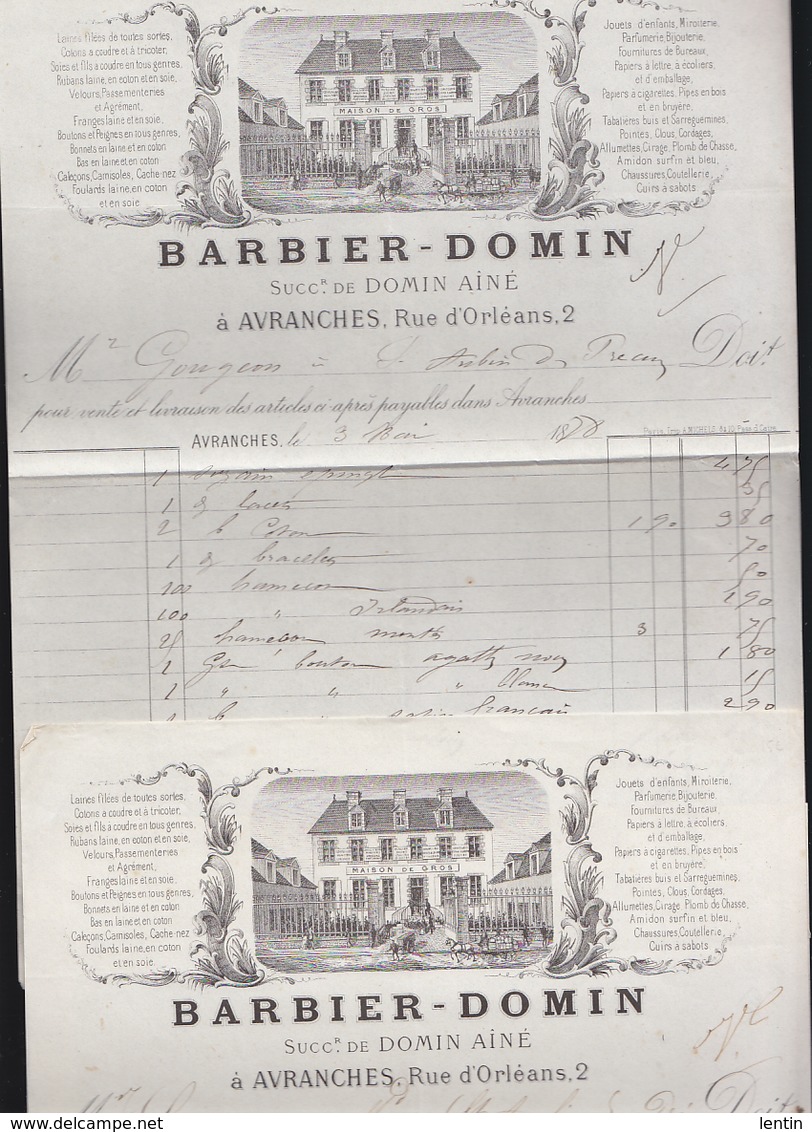 Laines filées de toutes sortes,
Cotons a coudre et à tricoter,
Soies et fils a coudre en tous genres,
Rubans laine, en coton et en soie,
Velours, Passementeries
et Agrément,
Franges laine et en soie,
Boutons et Peignes en tous genres,
Bonnets en laine et en coton
Bas en laine et en coton
Caleçons, Camisoles, Cache-nez
Foulards laine, en coton
et en soie
MAISON DE GROS
Jouets d'enfants, Miroiterie,
Parfumerie, Bijouterie,
Fournitures de Bureaux,
Papiers à lettre, à écoliers,
et d'emballage,
Papiers à cigarettes, Pipes en bois
et en bruyère,
Tabatières buis et Sarreguemines,
Pointes, Clous, Cordages,
Allumettes, Cirage, Plomb de Chasse,
Amidon surfin et bleu,
Chaussures, Coutellerie,
Cuirs a sabots.
BARBIER-DOMIN
SUCCR. DE DOMIN AÎNÉ
à AVRANCHES, Rue d'Orléans, 2
Mr Gougeon à St Aubin de Doit
pour vente et livraison des articles ci-après payables dans Avranches
AVRANCHES, le 3 Mai 1878
1 4 75
1 g lacets 35
2 b Coton 1 90 3 80
1 g bracelets 70
100 hamecon 50
100 " Irlandais 1 90
25 hamecon montés 3 75
1 Gse bouton agathe noir 1 80
1 " " " blanc 15
français 2 90
Laines filées de toutes sortes,
Cotons a coudre et à tricoter,
Soies et fils à coudre en tous genres,
Rubans laine, en coton et en soie,
Velours, Passementeries
et Agrément,
Franges laine et en soie,
Boutons et Peignes en tous genres,
Bonnets en laine et en coton
Bas en laine et en coton
Caleçons, Camisoles, Cache-nez
Foulards laine, en coton
et en soie
MAISON DE GROS
Jouets d'enfants, Miroiterie,
Parfumerie, Bijouterie,
Fournitures de Bureaux,
Papiers à lettre, à écoliers,
et d'emballage,
Papiers a cigarettes, Pipes en bois
et en bruyère,
Tabatières buis et Sarreguemines,
Pointes, Clous, Cordages,
Allumettes, Cirage Plomb de Chasse,
Amidon surfin et bleu,
Chaussures, Coutellerie,
Cuirs a sabots.
BARBIER-DOMIN
SUCCR. DE DOMIN AÎNÉ
à AVRANCHES, Rue d'Orléans, 2
Doit
lentin